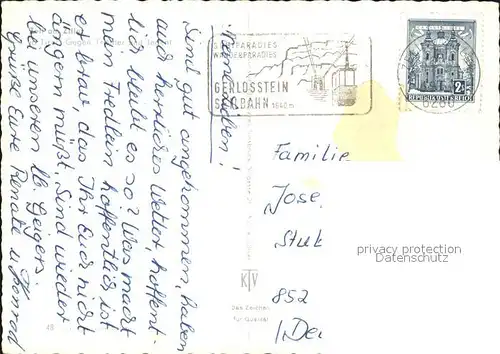 Ihr Lieben!
Sind gut angekommen, haben
auch herrliches Wetter, hoffent-
lich bleibt es so? Was macht
mein Friedlein hoffentlich ist
er brav, das Ihr Euch nicht
ärgern müßt. Sind wieder
bei unseren lb. Geigers
Grüße Eure Renate u. Konrad
Gegen
48
SKIPARADIES
WANDERPARADIES
GERLOSSTEIN
SEILBAHN 1640 m
6280
REPUBLIK ÖSTERREICH
KTV
Das Zeichen
für Qualität
Familie
Jose
Stub
852
privacy protection
Datenschutz